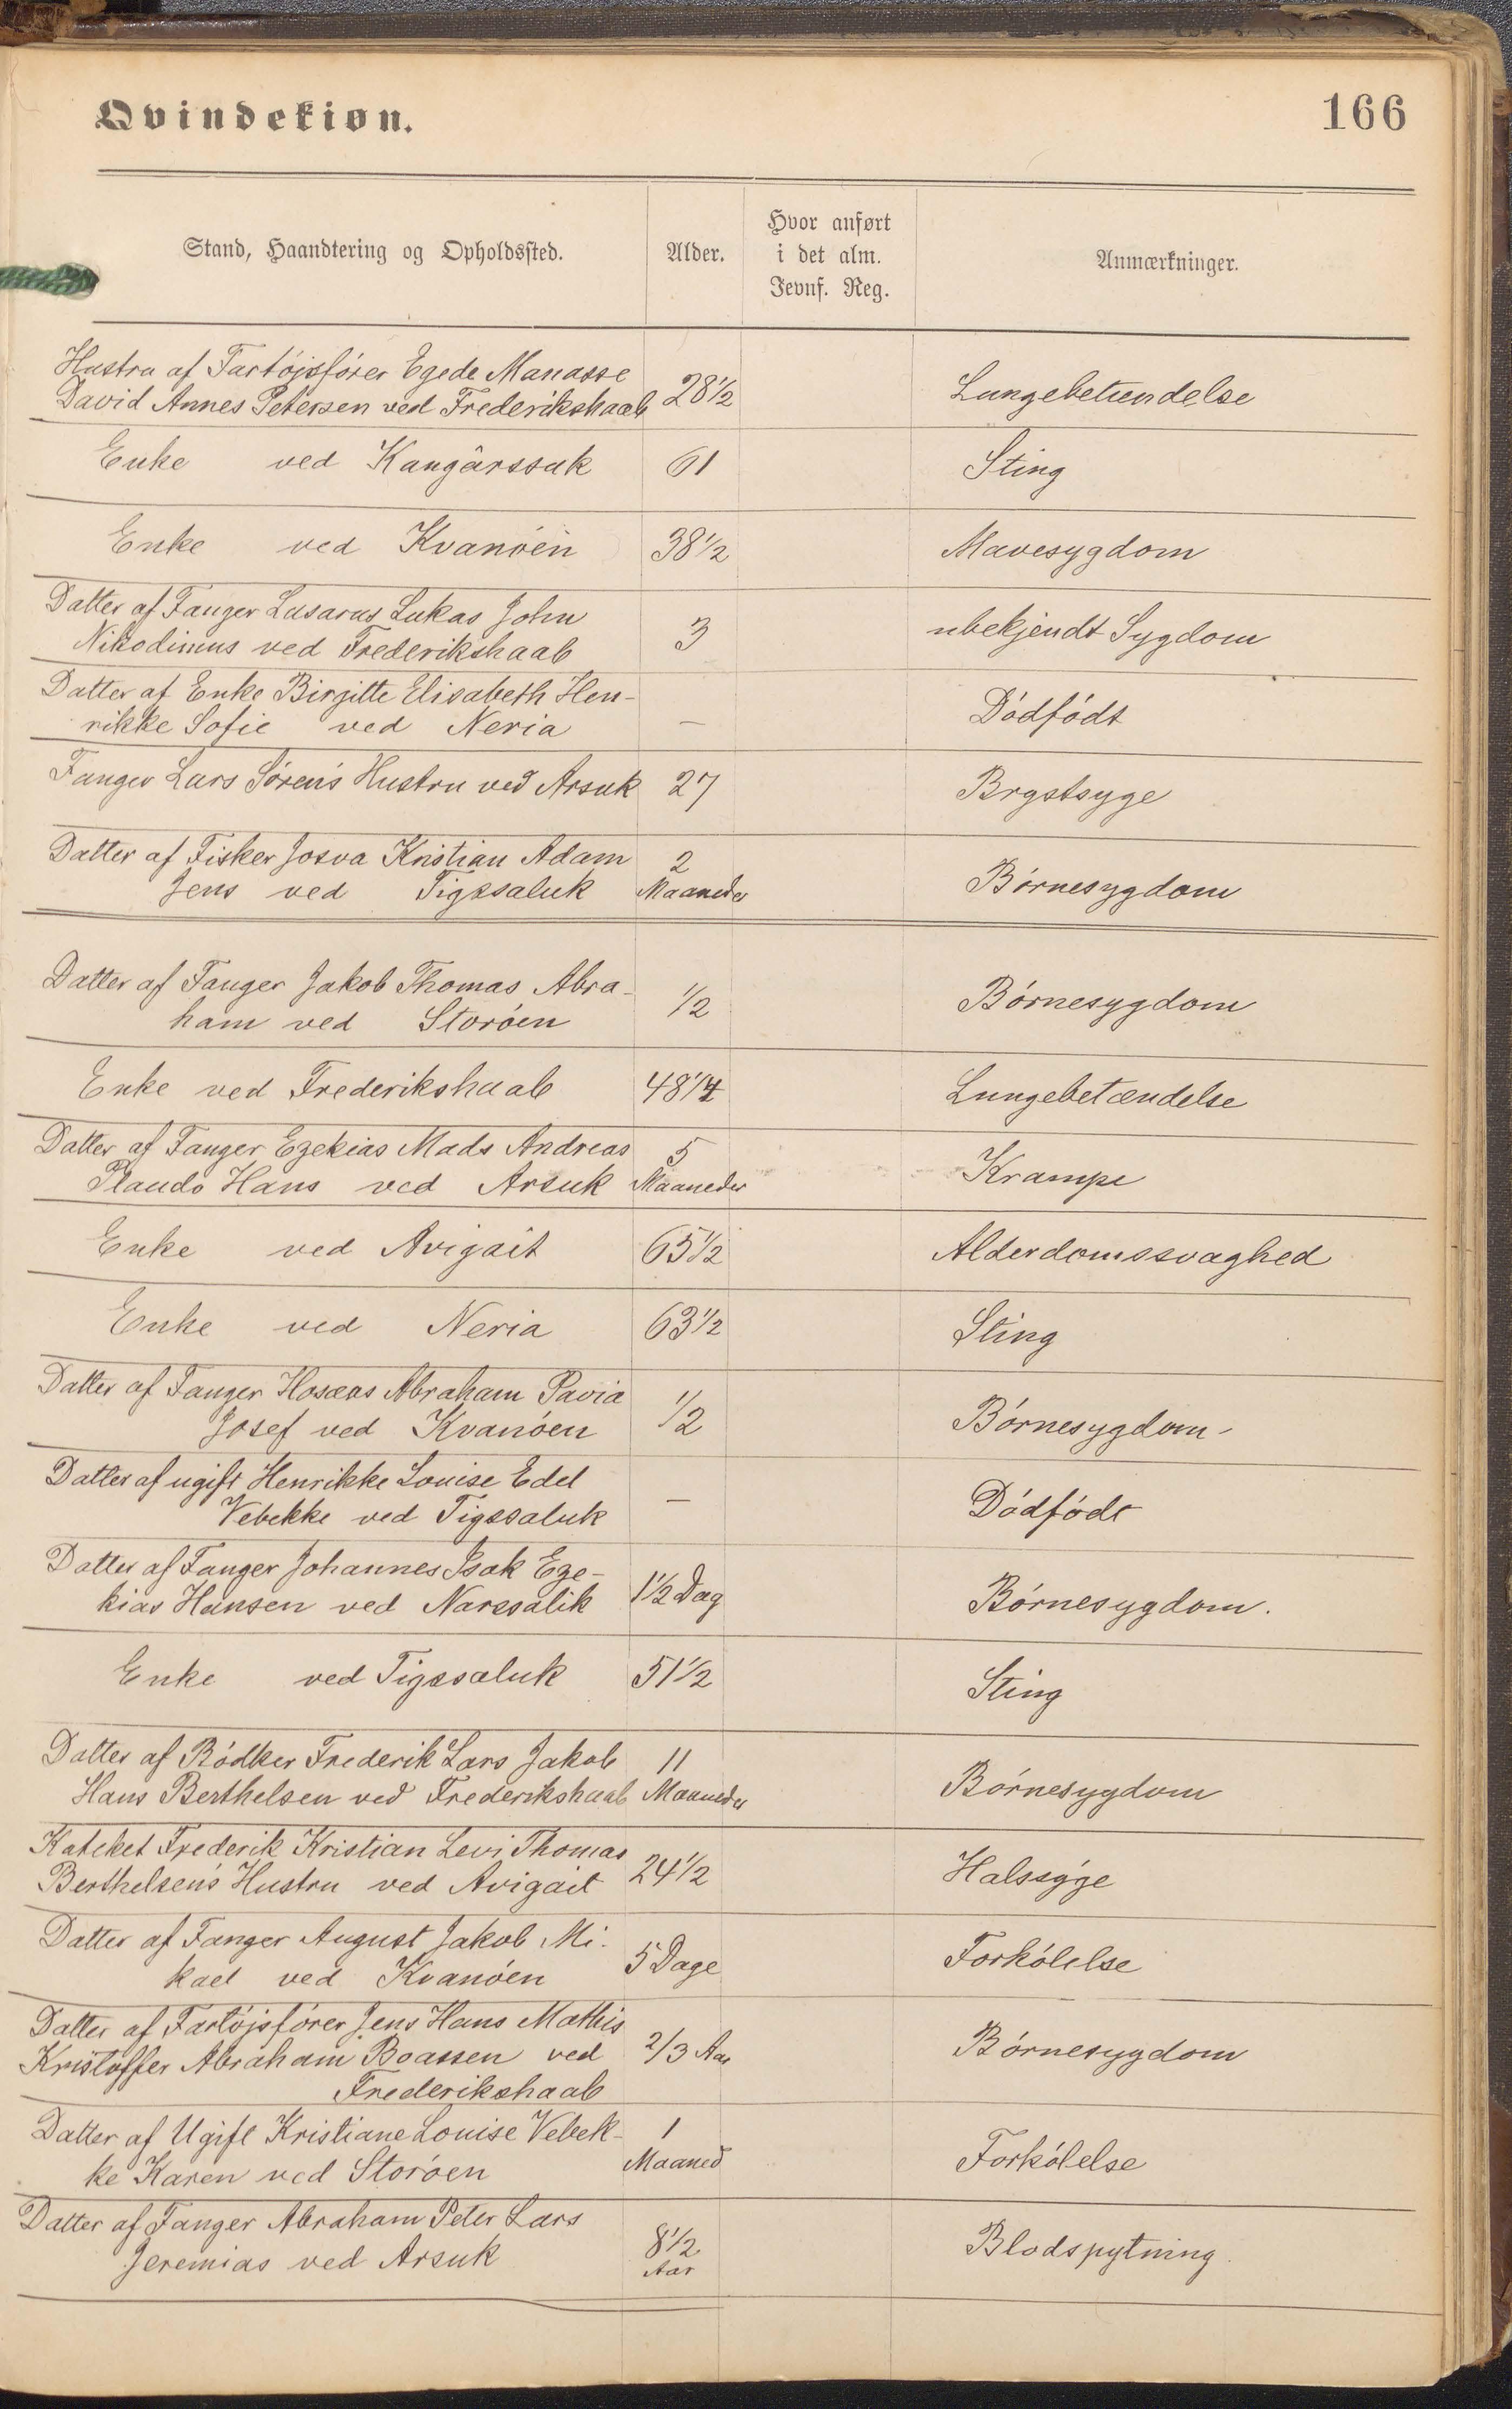 Qvindekiøn.
166
Stand, Haandtering og Opholdssted.
Alder.
Hvor anført
i det alm.
Jevnf. Reg.
Anmærkninger.
Hustru af Fartøjsfører Egede Manasse
David Annes Petersen ved Frederikshaab 28½ Lungebetændelse
Enke ved Kangârssuk 61 Sting
Enke ved Kvanøen 38½ Mavesygdom
Datter af Fanger Lasarus Lukas John
Nikodimus ved Frederikshaab 3 ubekjendt Sygdom
Datter af Enke Birgitte Elisabeth Hen-
rikke Sofie ved Neria — Dødfødt
Fanger Lars Søren's Hustru ved Arsuk 27 Brystsyge
Datter af Fisker Josva Kristian Adam 2
Jens ved Tigssaluk Maaneder Børnesygdom
Datter af Fanger Jakob Thomas Abra-
ham ved Storøen ½ Børnesygdom
Enke ved Frederikshaab 48¼ Lungebetændelse
Datter af Fanger Ezekias Mads Andreas 5
Hans ved Arsuk Maaneder Krampe
Enke ved Avigait 65½ Alderdomssvaghed
Enke ved Neria 63½ Sting
Datter af Fanger Hosæas Abraham Pavia
Josef ved Kvanøen ½ Børnesygdom-
Datter af ugift Henrikke Louise Edel
Vebekke ved Tigssaluk — Dødfødt
Datter af Fanger Johannes Isak Eze-
kias Hansen ved Narssalik 1½ Dag Børnesygdom.
Enke ved Tigssaluk 51½ Sting
Datter af Bødker Frederik Lars Jakob 11
Hans Berthelsen ved Frederikshaab Maaneder Børnesygdom
Kateket Frederik Kristian Levi Thomas
Berthelsen's Hustru ved Avigait 24½ Halssyge
Datter af Fanger August Jakob Mi-
kael ved Kvanøen 5 Dage Forkølelse
Datter af Fartøjsfører Jens Hans Mathis
Kristoffer Abraham Boassen ved 2/3 Aar Børnesygdom
Frederikshaab
Datter af Ugift Kristiane Louise Vebek- 1
ke Karen ved Storøen Maaned Forkølelse
Datter af Fanger Abraham Peter Lars
Jeremias ved Arsuk 8½ Aar Blodspytning